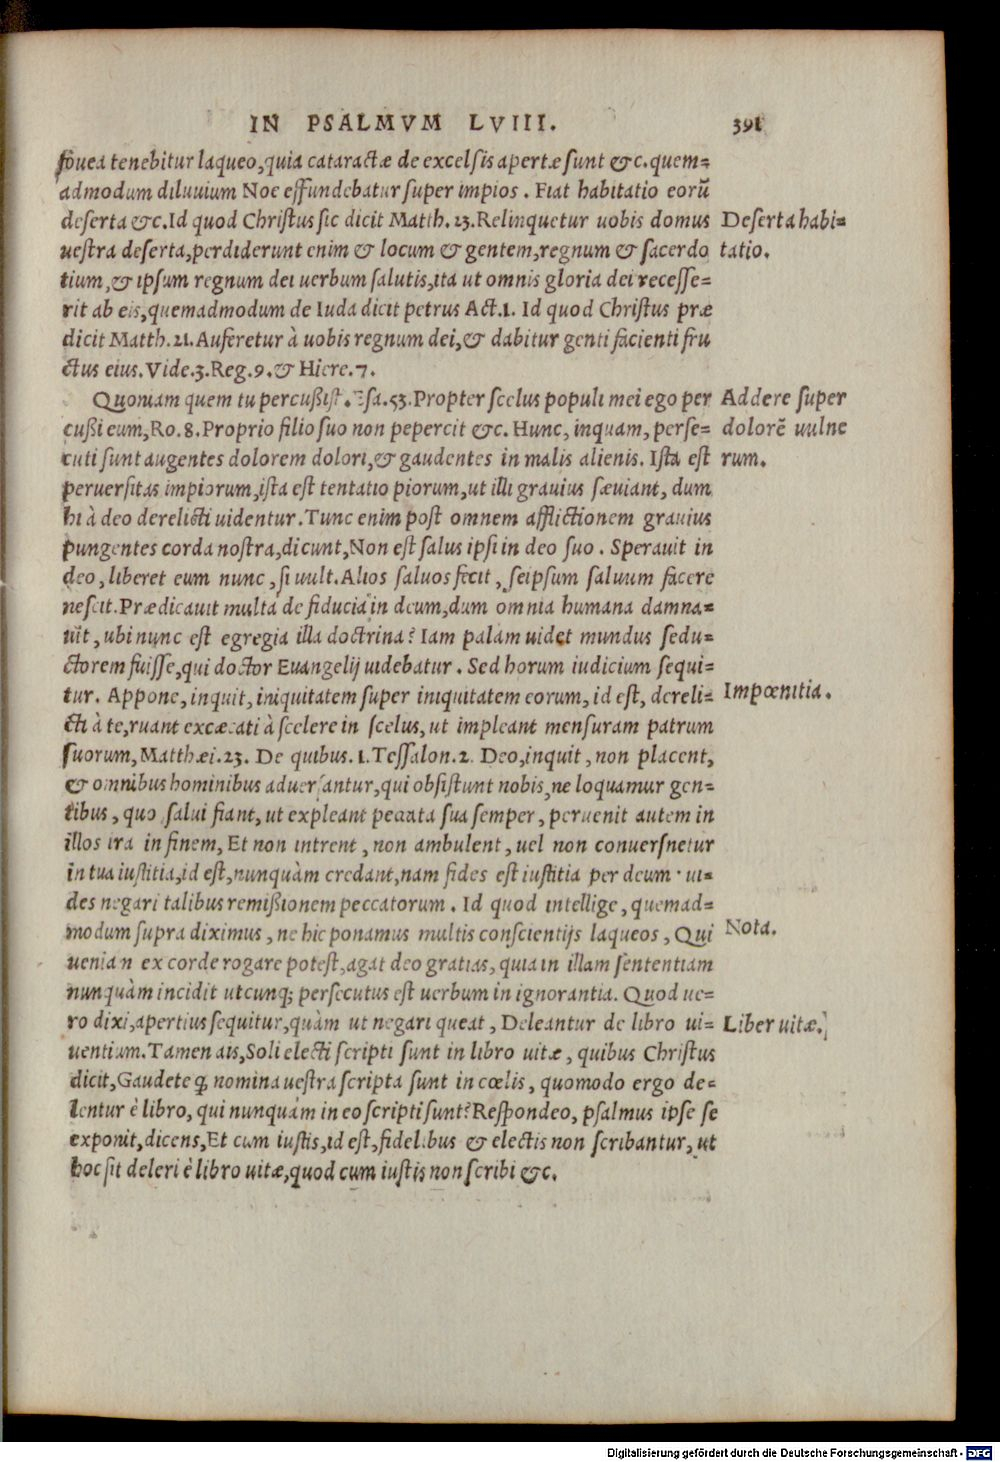 IN PSALMVM LVIII. 391
fouea tenebitur laqueo, quia cataractæ de excelsis apertæ sunt &c. quem=
admodum diluuium Noe effundebatur super impios. Fiat habitatio eorũ
deserta &c. Id quod Christus sic dicit Matth. 23. Relinquetur uobis domus
Deserta habi=
uestra deserta, perdiderunt enim & locum & gentem, regnum & sacerdo
tatio.
tium, & ipsum regnum dei uerbum salutis, ita ut omnis gloria dei recesse=
rit ab eis, quemadmodum de Iuda dicit petrus Act. 1. Id quod Christus præ
dicit Matth. 21. Auferetur à uobis regnum dei, & dabitur genti facienti fru
ctus eius. Vide. 3. Reg. 9. & Hiere. 7.
Quoniam quem tu percußist. Esa. 53. Propter scelus populi mei ego per
Addere super
cußi eum, Ro. 8. Proprio filio suo non pepercit &c. Hunc, inquam, perse=
dolorẽ uulne
cuti sunt augentes dolorem dolori, & gaudentes in malis alienis. Ista est
rum.
peruersitas impiorum, ista est tentatio piorum, ut illi grauius sæuiant, dum
hi à deo derelicti uidentur. Tunc enim post omnem afflictionem grauius
pungentes corda nostra, dicunt, Non est salus ipsi in deo suo. Sperauit in
deo, liberet eum nunc, si uult. Alios saluos fecit, seipsum saluum facere
nescit. Prædicauit multa de fiducia in deum, dum omnia humana damna=
uit, ubi nunc est egregia illa doctrina? Iam palam uidet mundus sedu=
ctorem fuisse, qui doctor Euangelij uidebatur. Sed horum iudicium sequi=
tur. Appone, inquit, iniquitatem super iniquitatem eorum, id est, dereli=
Impœnitia.
cti à te, ruant excæcati à scelere in scelus, ut impleant mensuram patrum
suorum, Matthæi. 23. De quibus. 1. Tessalon. 2. Deo, inquit, non placent,
& omnibus hominibus aduersantur, qui obsistunt nobis, ne loquamur gen=
tibus, quo salui fiant, ut expleant peccata sua semper, peruenit autem in
illos ira in finem, Et non intrent, non ambulent, uel non conuersnetur
in tua iustitia, id est, nunquàm credant, nam fides est iustitia per deum. ui=
des negari talibus remißionem peccatorum. Id quod intellige, quemad=
modum supra diximus, ne hic ponamus multis conscientijs laqueos, Qui
Nota.
ueniam ex corde rogare potest, agat deo gratias, quia in illam sententiam
nunquàm incidit utcunq; persecutus est uerbum in ignorantia. Quod ue=
ro dixi, apertius sequitur, quàm ut negari queat, Deleantur de libro ui=
Liber uitæ.
uentium. Tamen ais, Soli electi scripti sunt in libro uitæ, quibus Christus
dicit, Gaudete q̃ nomina uestra scripta sunt in cœlis, quomodo ergo de=
lentur è libro, qui nunquàm in eo scripti sunt? Respondeo, psalmus ipse se
exponit, dicens, Et cum iustis, id est, fidelibus & electis non scribantur, ut
hoc sit deleri è libro uitæ, quod cum iustis non scribi &c.
Digitalisierung gefördert durch die Deutsche Forschungsgemeinschaft - DFG